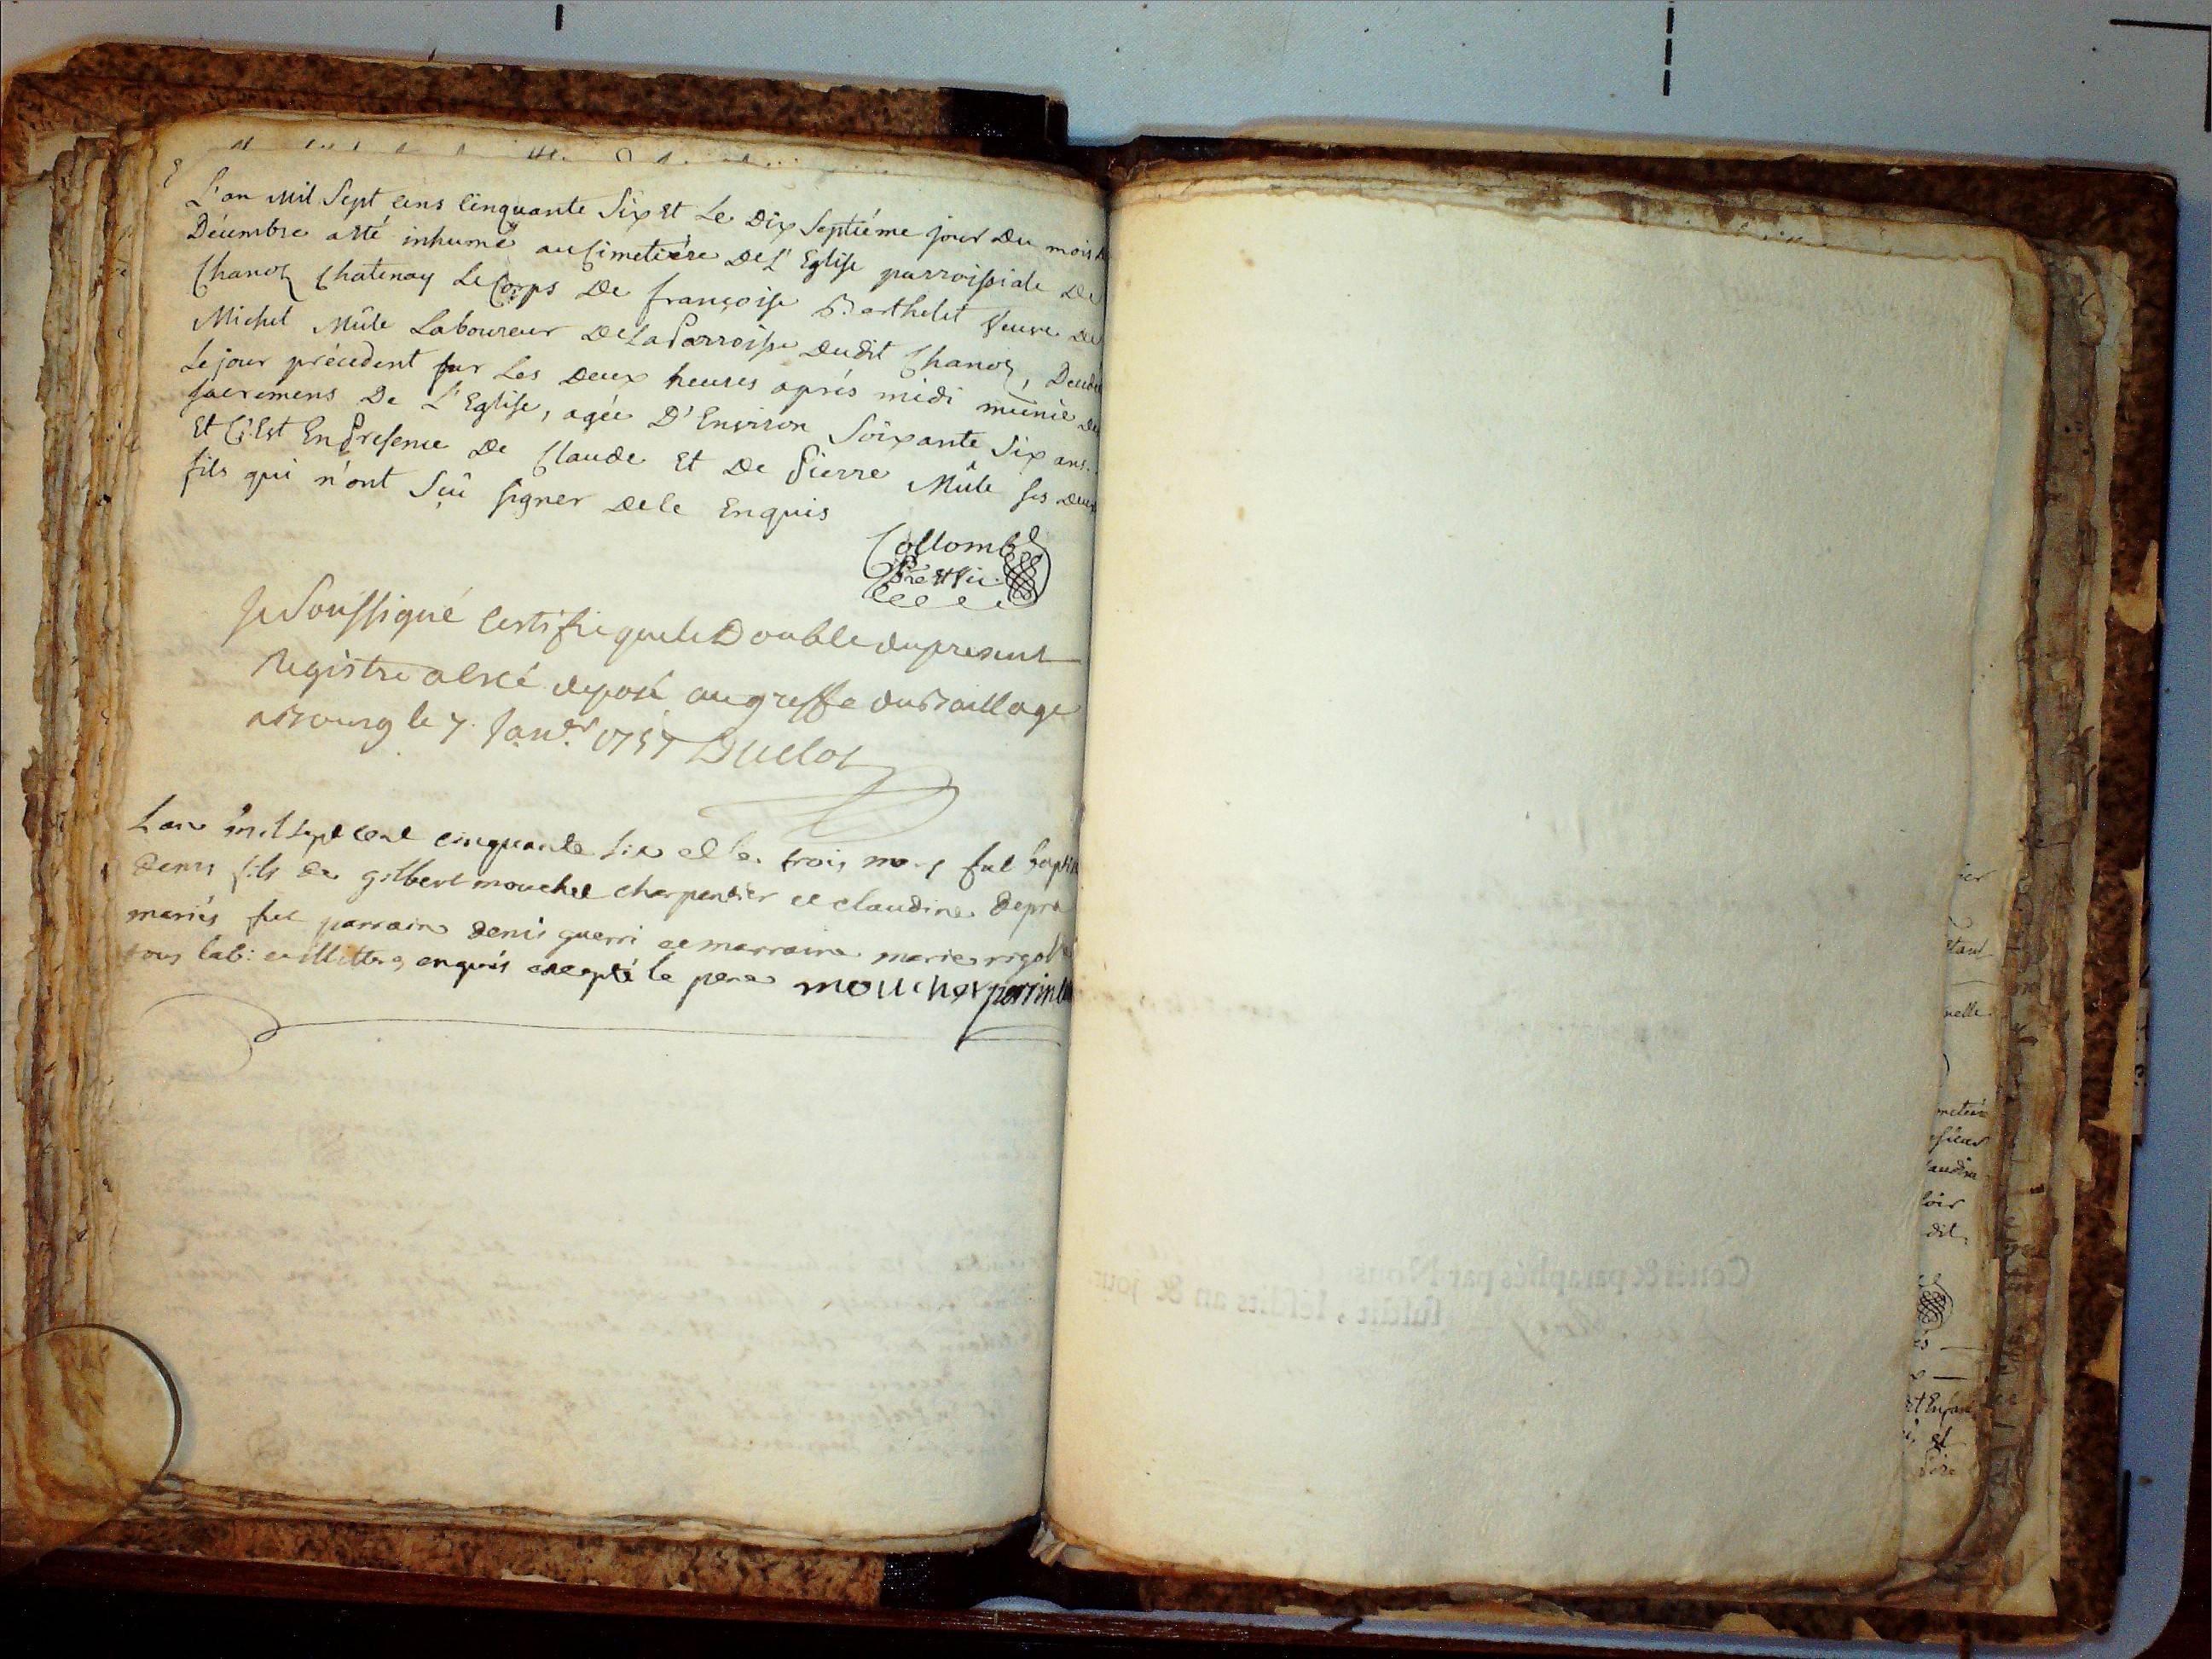 L'an Mil Sept cens Cinquante Six Et Le Dix Septiéme jour Du mois
Décembre aété inhumé au Cimetiére De L'Eglise parroissiale De
Chanoz Chatenay Le Corps De françoise Barthelet Veuve De
Michel Mûle Laboureur De La Parroisse Dudit Chanoz,
Le jour précedent sur Les Deux heures aprés midi munie
sacremens De L'Eglise, agée D'Environ Soixante Six ans.
Et C'Est En Presence De Claude Et De Pierre Mûle ses Deux
fils qui n'ont Sçû signer De le Enquis
Collomb
Pre et Vic.
Je Soussigné Certifie que le Double du present
Registre a esté deposé au greffe du Baillage
a Bourg le 7. Janer 1757 Duclos
Lan mil sept cent cinquante six et le trois mars fut
denis fils de gilbert mouchet charpentier et claudine
mariés fut parrain denis guerri et marraine marie
tous lab: et illittres enquis excepté le pere mouchet
Cottés & paraphés par Nous
susdit, lesdits an & jour